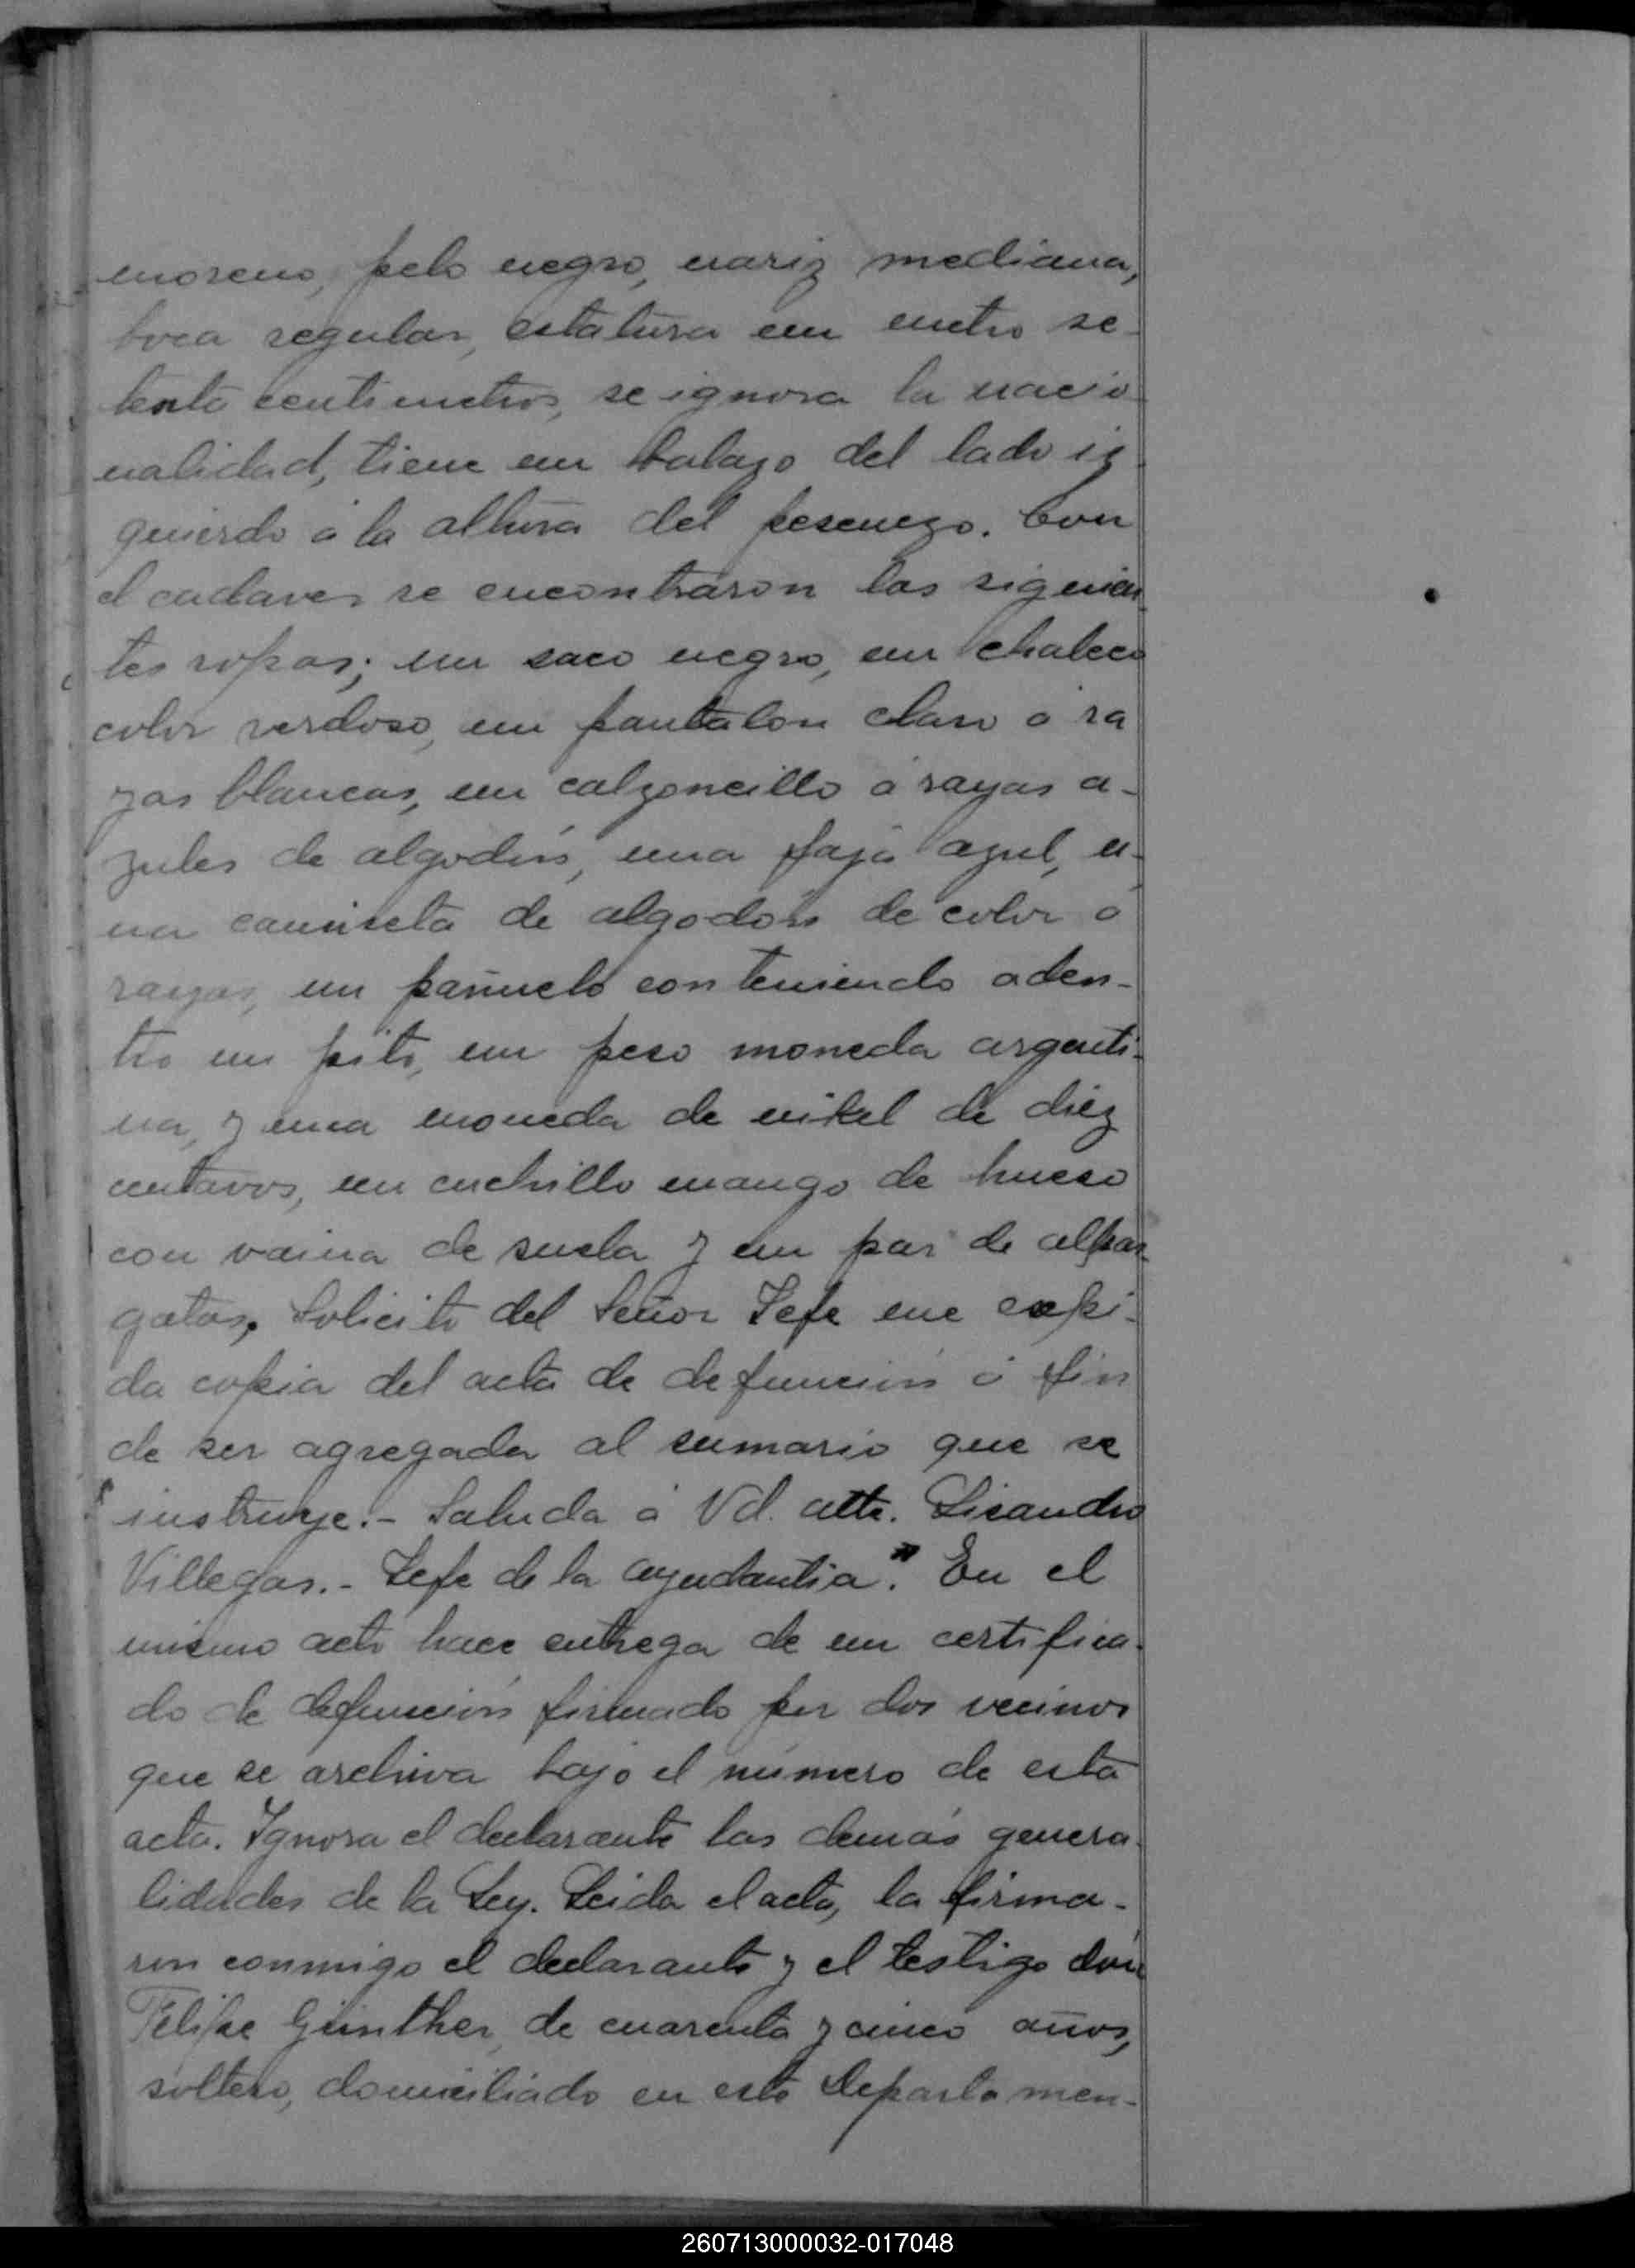 moreno, pelo negro, nariz mediana,
boca regular, estatura un metro se-
tenta centimetros, se ignora la nacio-
nalidad, tiene un balazo del lado iz-
quierdo á la altura del pescuezo. Con
el cadaver se encontraron las siguien-
tes ropas; un saco negro, un chaleco
color verdoso, un pantalon claro á ra
yas blancas, un calzoncillo á rayas a-
zules de algodón, una faja azul, u-
na camiseta de algodón de color á
rayas, un pañuelo conteniendo aden-
tro un pito, un peso moneda argenti-
na, y una moneda de nikel de diez
centavos, un cuchillo mango de hueso
con vaina de suela y un par de alpar-
gatas. Solicito del Señor Jefe me expi-
da copia del acta de defunción á fin
de ser agregada al sumario que se
instruye.- Saluda á Vd. atte. Lisandro
Villegas.- Jefe de la ayudantia." En el
mismo acto hace entrega de un certifica-
do de defunción firmado por dos vecinos
que se archiva bajo el número de esta
acta. Ignora el declarante las demás genera-
lidades de la Ley. Leida el acta, la firma-
ron conmigo el declarante y el testigo don
Felipe Günther, de cuarenta y cinco años,
soltero, domiciliado en este Departamen-
260713000032-017048